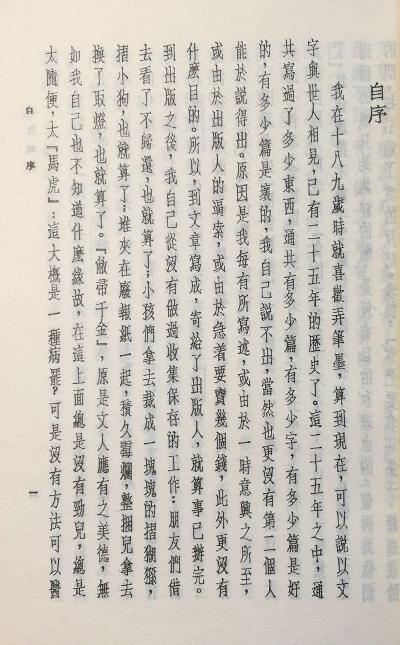 自序
我在十八九歲時就喜歡弄筆墨，算到現在，可以說以文
字與世人相見，已有二十五年的歷史了。這二十五年之中，通
共寫過了多少東西，通共有多少篇，有多少字，有多少篇是好
的，有多少篇是壞的，我自己說不出，當然也更沒有第二個人
能於說得出。原因是我每有所寫述，或由於一時意興之所至，
或由於出版人的逼索，或由於急着要賣幾個錢，此外更沒有
什麽目的。所以，到文章寫成，寄給了出版人，就算事已辦完。
到出版之後，我自己從沒有做過收集保存的工作：朋友們借
去看了不歸還，也就算了；小孩們拿去裁成一塊塊的摺猢猻，
摺小狗，也就算了；堆夾在廢報紙一起，積久霉爛，整捆兒拿去
換了取燈，也就算了。『敝帚千金』，原是文人應有之美德，無
如我自己也不知道什麽緣故，在這上面總是沒有勁兒，總是
太隨便，太『馬虎』：這大概是一種病罷？可是沒有方法可以醫
序
一